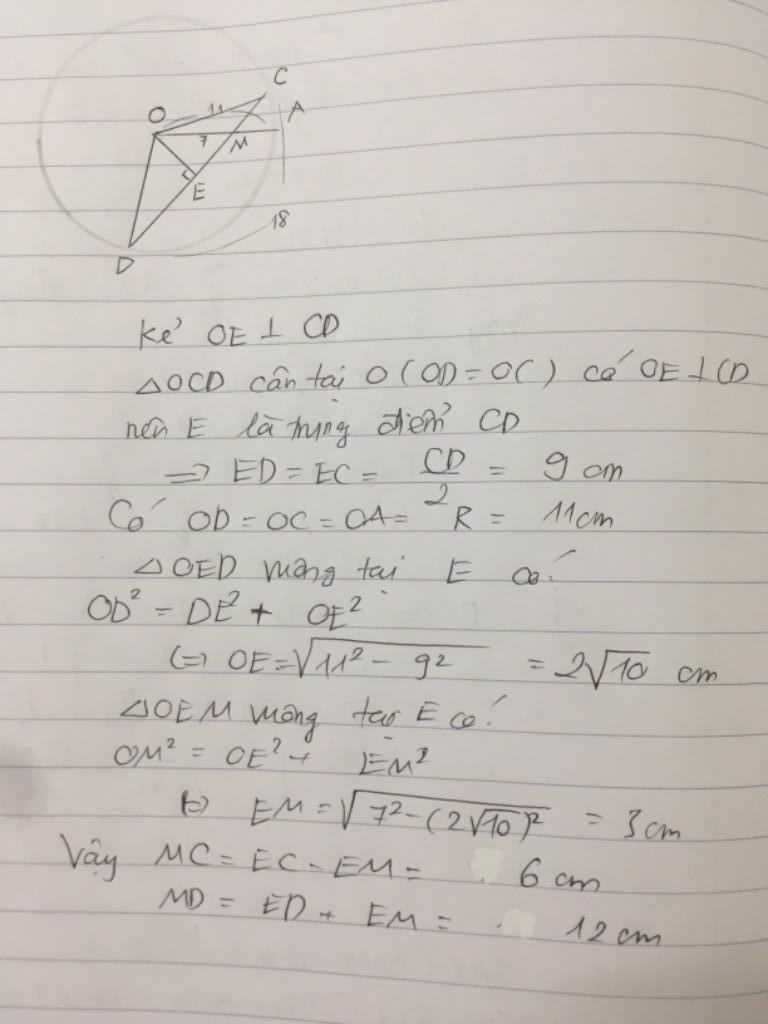 C
O 11 A
7 M
E
18
D
Kẻ OE ⊥ CD
△OCD cân tại O (OD = OC) có OE ⊥ CD
nên E là trung điểm CD
=> ED = EC = CD/2 = 9 cm
Có OD = OC = OA = R = 11cm
△OED vuông tại E có:
OD² = DE² + OE²
(=> OE = √(11² - 9²) = 2√10 cm
△OEM vuông tại E có:
OM² = OE² + EM²
EM = √(7² - (2√10)²) = 3cm
Vậy MC = EC - EM = 6 cm
MD = ED + EM = 12 cm